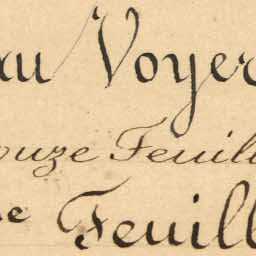 au Voyer
ouze Feuill
e Feuill